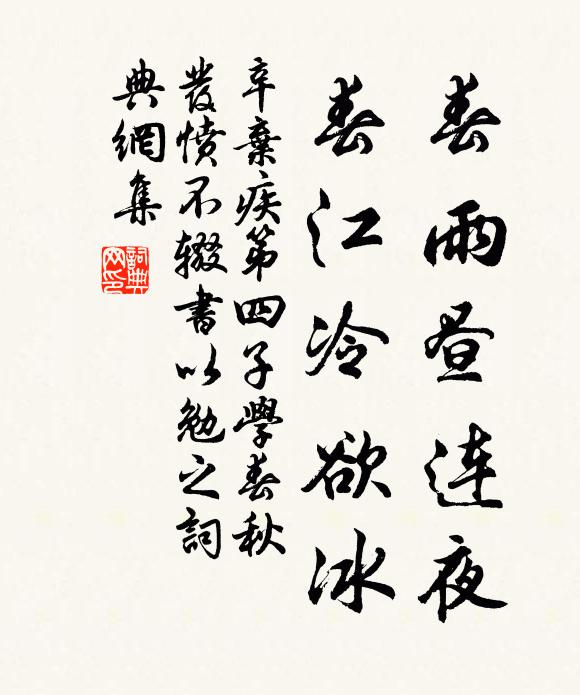 春雨昼連夜
春江冷欲冰
辛棄疾第四子學春秋
發憤不辍書以勉之詞
典網集
詞典網印